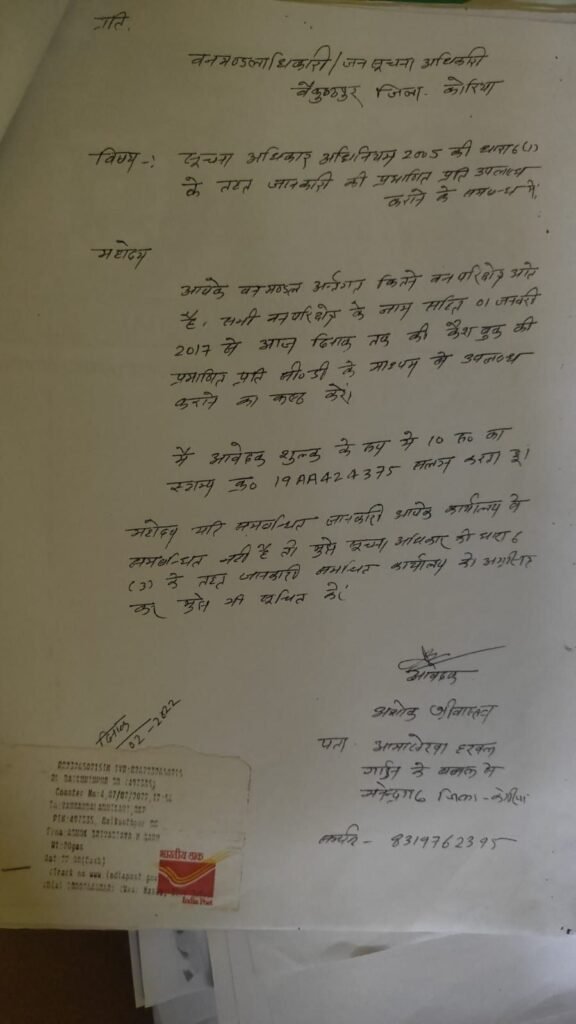 प्रति,
वनमण्डलाधिकारी/जन सूचना अधिकारी
बैकुण्ठपुर जिला- कोरिया
विषय -: सूचना अधिकार अधिनियम 2005 की धारा 6(1)
के तहत जानकारी की प्रमाणित प्रति उपलब्ध
कराने के सम्बन्ध में,
महोदय
आपके वनमण्डल अर्न्तगत कितने वन परिक्षेत्र आते
है, सभी वन परिक्षेत्र के नाम सहित 01 जनवरी
2017 से आज दिनांक तक की कैश बुक की
प्रमाणित प्रति सी०डी के माध्यम से उपलब्ध
कराने का कष्ट करें।
मैं आवेदक शुल्क के रूप में 10 रु० का
स्टाम्प क्र० 19AA424375 सलग्न करता हूं।
महोदय यदि सम्बन्धित जानकारी आपके कार्यालय से
सम्बन्धित नहीं है तो मुझे सूचना अधिकार की धारा 6
(3) के तहत जानकारी सम्बन्धित कार्यालय को
कर मुझे भी सूचित करें
आवेदक
अशोक श्रीवास्तव
पता- आमाखेरवा हरवल
गार्डन के बगल में
जिला - कोरिया
- 8319762395
दिनांक
02-2022
Counter No:4,07/07/2022,17:14
PIN:497335, Baikunthpur
Wt:20gms
भारतीय डाक
India Post